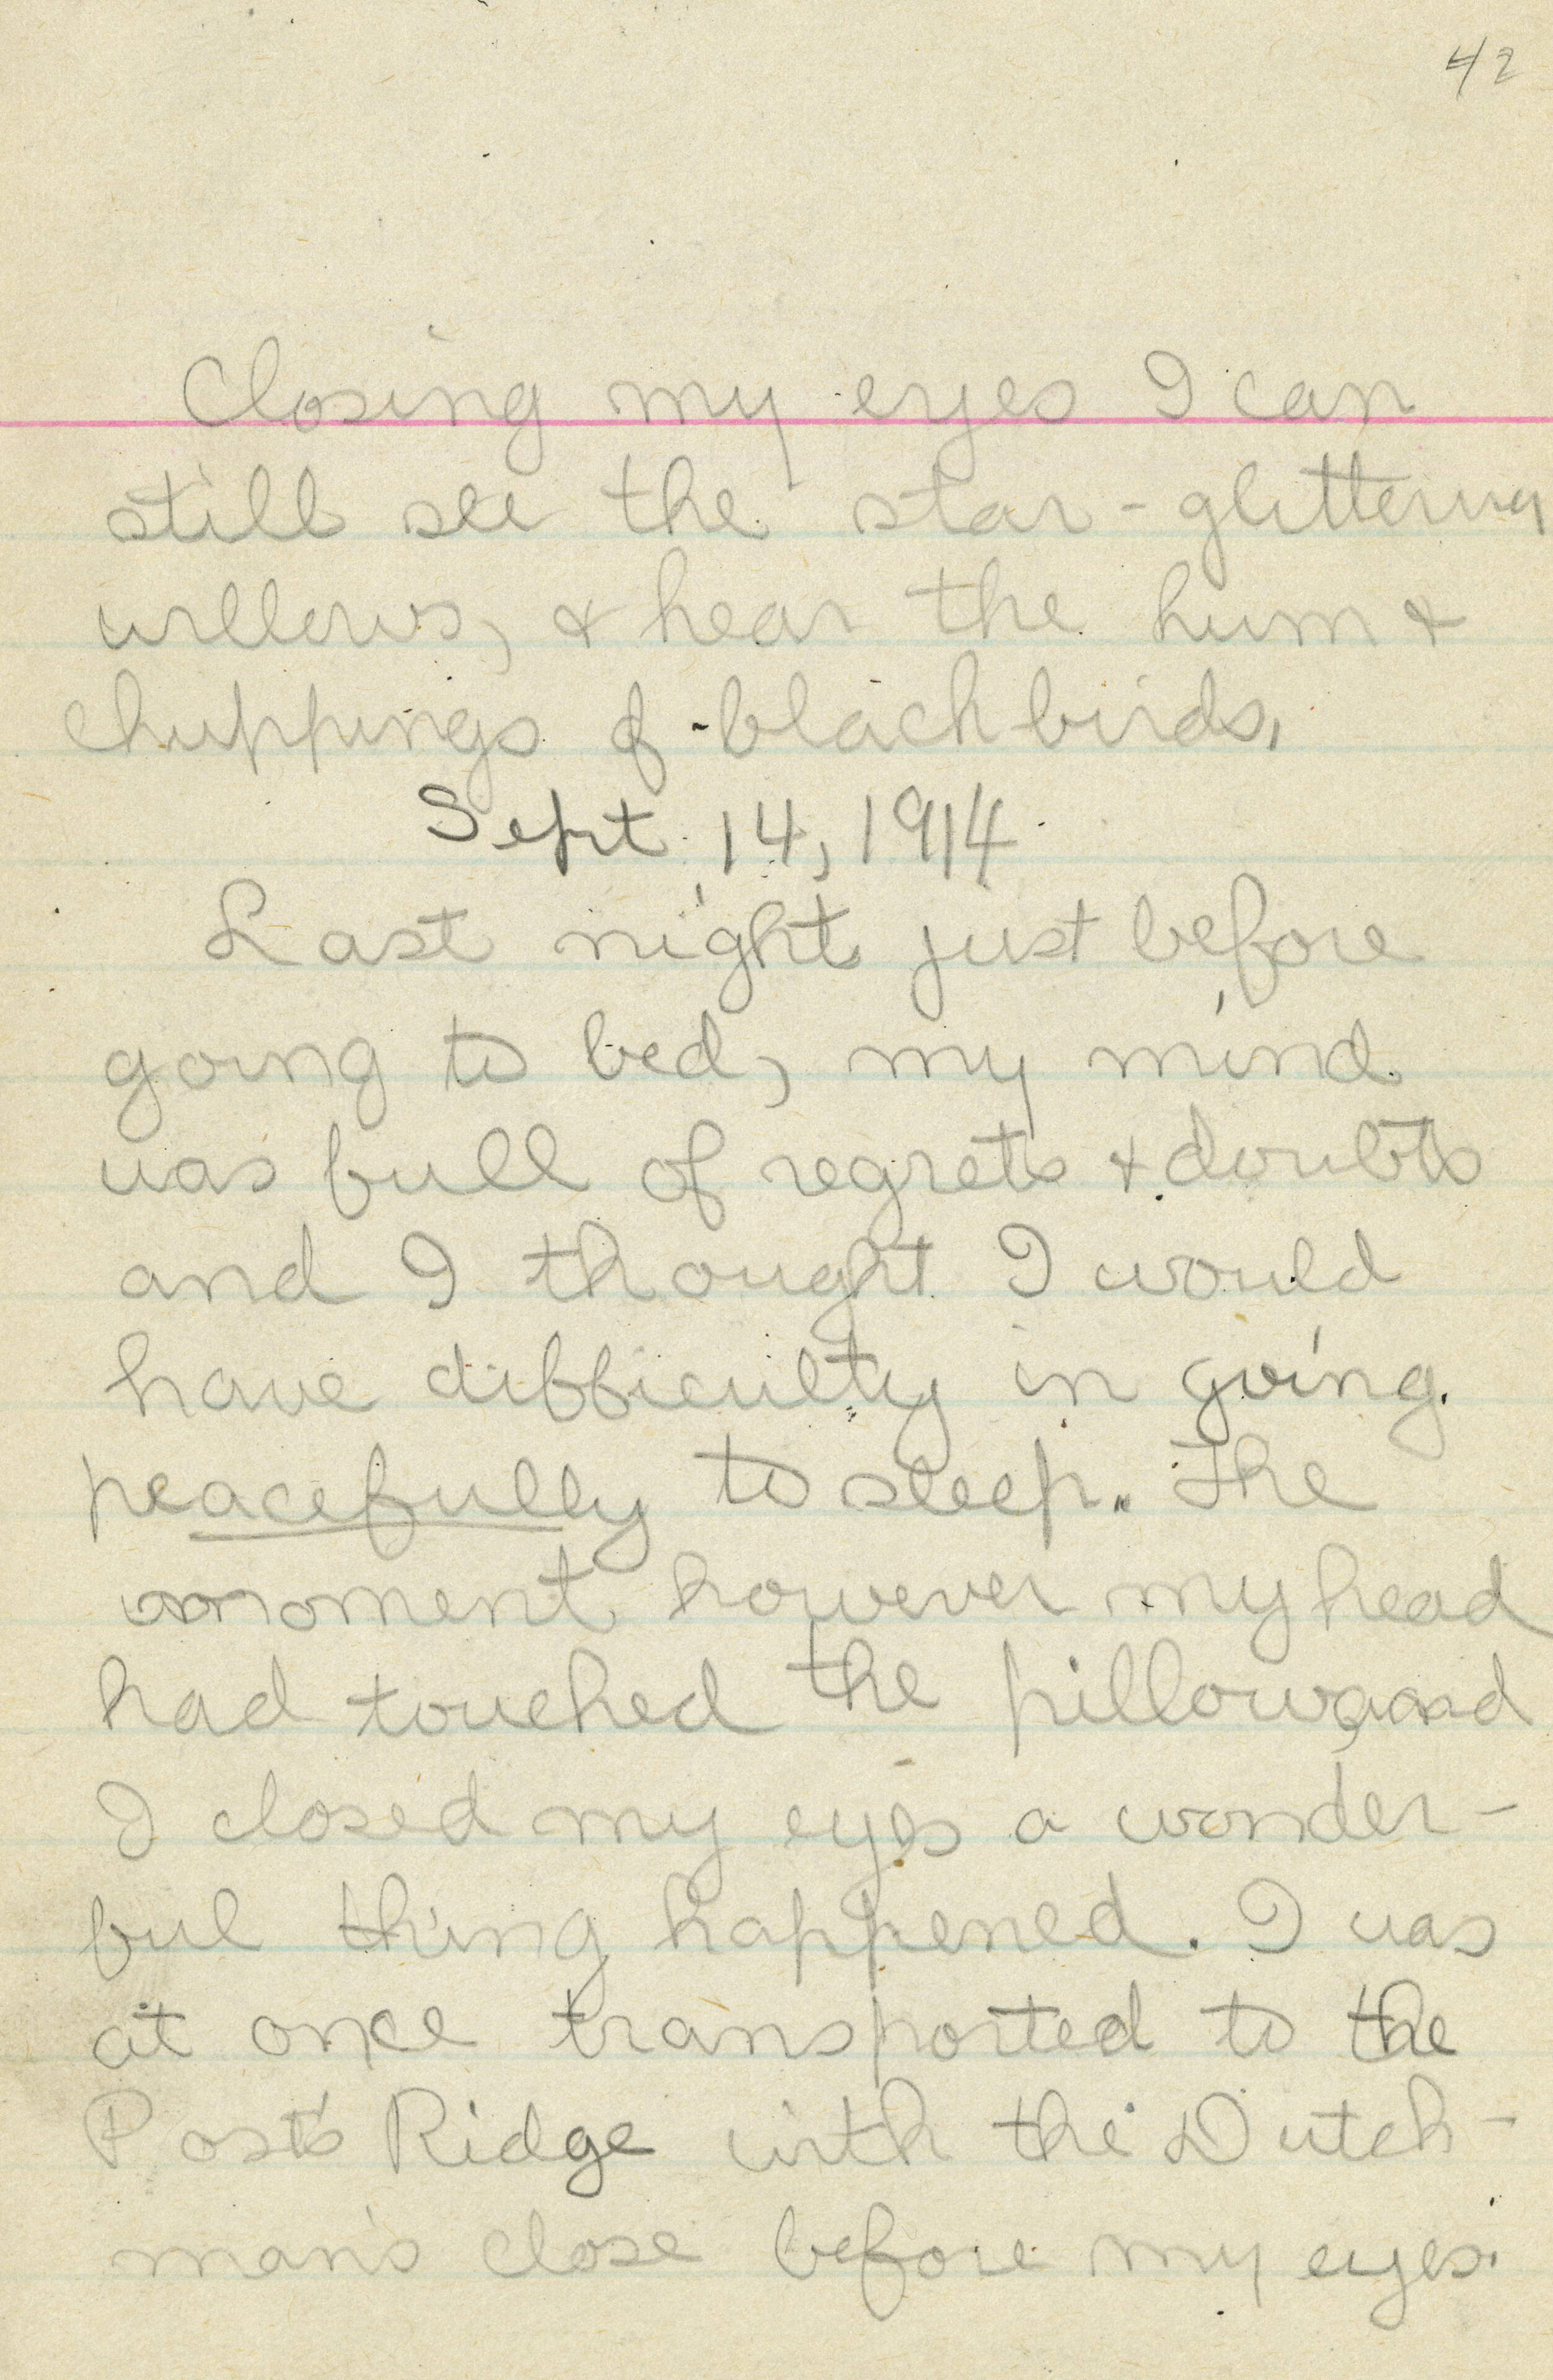 42
Closing my eyes I can
still see the star-glittering
willows, & hear the hum &
chuppings of blackbirds,
Sept 14, 1914
Last night just before
going to bed, my mind
was full of regrets & doubts
and I thought I would
have difficulty in going
peacefully to sleep. The
moment however my head
had touched the pillow, and
I closed my eyes a wonder-
ful thing happened. I was
at once transported to the
Post's Ridge with the Dutch-
man's close before my eyes.